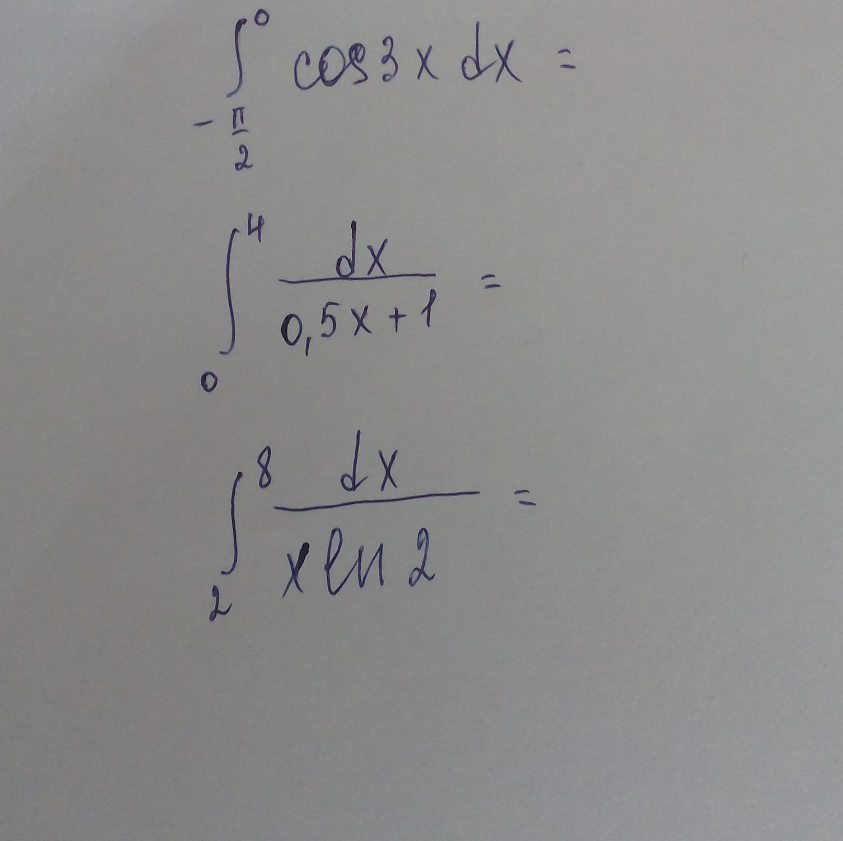 ∫_{-π/2}^{0} cos3x dx =
∫_{0}^{4} dx / (0,5x+1) =
∫_{2}^{8} dx / (x ln 2) =